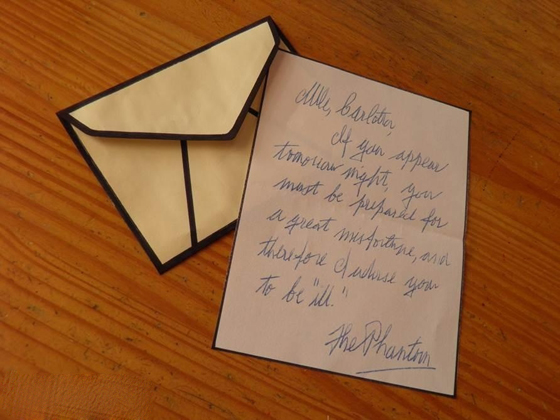 Mlle, Carlotta,
If you appear
tomorrow night, you
must be prepared for
a great misfortune, and
therefore I advise you
to be "ill."
The Phantom